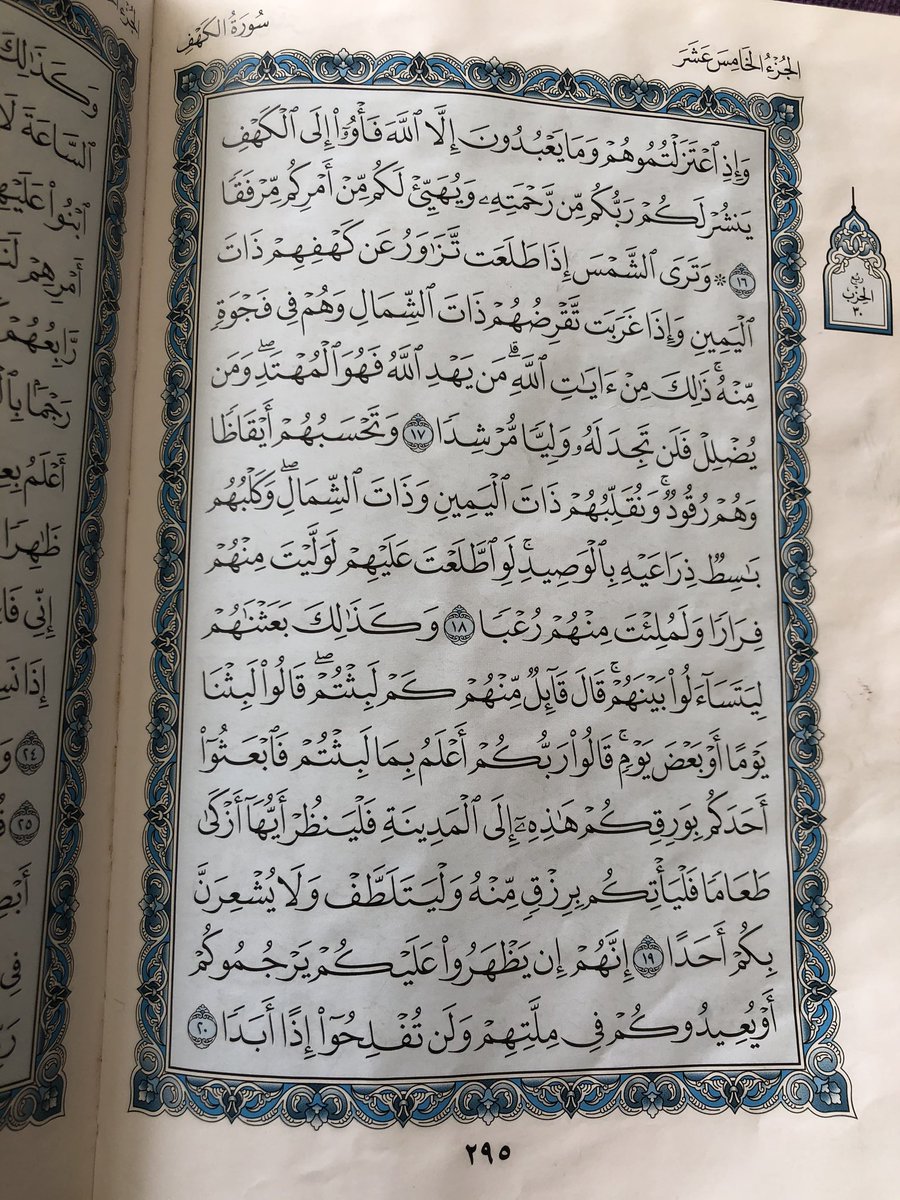 الجُزْءُ الخَامِسَ عَشَرَ
سُورَةُ الكَهْفِ
وَإِذِ ٱعۡتَزَلۡتُمُوهُمۡ وَمَا يَعۡبُدُونَ إِلَّا ٱللَّهَ فَأۡوُۥٓاْ إِلَى ٱلۡكَهۡفِ
يَنشُرۡ لَكُمۡ رَبُّكُم مِّن رَّحۡمَتِهِۦ وَيُهَيِّئۡ لَكُم مِّنۡ أَمۡرِكُم مِّرۡفَقٗا
١٦ ۞ وَتَرَى ٱلشَّمۡسَ إِذَا طَلَعَت تَّزَٰوَرُ عَن كَهۡفِهِمۡ ذَاتَ
ٱلۡيَمِينِ وَإِذَا غَرَبَت تَّقۡرِضُهُمۡ ذَاتَ ٱلشِّمَالِ وَهُمۡ فِي فَجۡوَةٖ
مِّنۡهُۚ ذَٰلِكَ مِنۡ ءَايَٰتِ ٱللَّهِۗ مَن يَهۡدِ ٱللَّهُ فَهُوَ ٱلۡمُهۡتَدِۖ وَمَن
يُضۡلِلۡ فَلَن تَجِدَ لَهُۥ وَلِيّٗا مُّرۡشِدٗا ١٧ وَتَحۡسَبُهُمۡ أَيۡقَاظٗا
وَهُمۡ رُقُودٞۚ وَنُقَلِّبُهُمۡ ذَاتَ ٱلۡيَمِينِ وَذَاتَ ٱلشِّمَالِۖ وَكَلۡبُهُم
بَٰسِطٞ ذِرَاعَيۡهِ بِٱلۡوَصِيدِۚ لَوِ ٱطَّلَعۡتَ عَلَيۡهِمۡ لَوَلَّيۡتَ مِنۡهُمۡ
فِرَارٗا وَلَمُلِئۡتَ مِنۡهُمۡ رُعۡبٗا ١٨ وَكَذَٰلِكَ بَعَثۡنَٰهُمۡ
لِيَتَسَآءَلُواْ بَيۡنَهُمۡۚ قَالَ قَآئِلٞ مِّنۡهُمۡ كَمۡ لَبِثۡتُمۡۖ قَالُواْ لَبِثۡنَا
يَوۡمًا أَوۡ بَعۡضَ يَوۡمٖۚ قَالُواْ رَبُّكُمۡ أَعۡلَمُ بِمَا لَبِثۡتُمۡ فَٱبۡعَثُوٓاْ
أَحَدَكُم بِوَرِقِكُمۡ هَٰذِهِۦٓ إِلَى ٱلۡمَدِينَةِ فَلۡيَنظُرۡ أَيُّهَآ أَزۡكَىٰ
طَعَامٗا فَلۡيَأۡتِكُم بِرِزۡقٖ مِّنۡهُ وَلۡيَتَلَطَّفۡ وَلَا يُشۡعِرَنَّ
بِكُمۡ أَحَدًا ١٩ إِنَّهُمۡ إِن يَظۡهَرُواْ عَلَيۡكُمۡ يَرۡجُمُوكُمۡ
أَوۡ يُعِيدُوكُمۡ فِي مِلَّتِهِمۡ وَلَن تُفۡلِحُوٓاْ إِذًا أَبَدٗا ٢٠
٢٩٥
ربع
الحزب
٣٠
وَكَذَٰلِكَ
ٱلسَّاعَةَ لَا
ٱبۡنُواْ عَلَيۡهِ
أَمۡرِهِمۡ لَنَ
رَّابِعُهُمۡ
رَجۡمَۢا بِٱلۡ
أَعۡلَمُ بِعِ
ظَٰهِرٗا
إِنِّي فَا
إِذَا نَسِ
٢٤ وَ
٢٥
أَبۡصِ
فِي